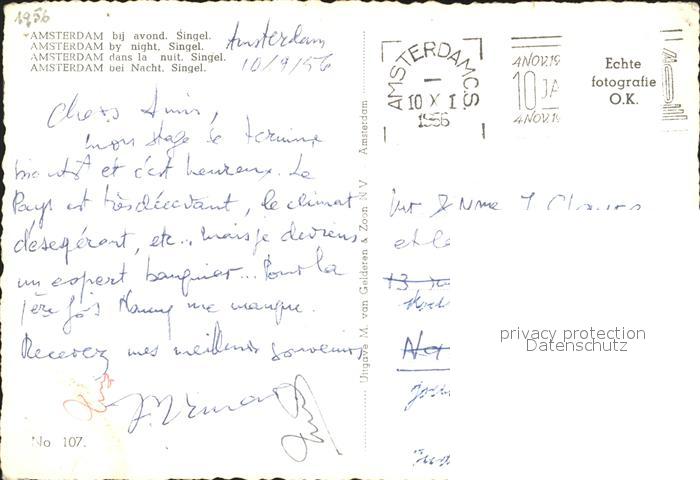 1956
AMSTERDAM bij avond. Singel.
AMSTERDAM by night, Singel.
AMSTERDAM dans la nuit. Singel.
AMSTERDAM bei Nacht. Singel.
Amsterdam
10/9/56
Chers Amis,
mon stage se termine
bientôt et c'est heureux. Le
Pays est très décevant, le climat
désespérant, etc.. mais je deviens
un expert banquier... Pour la
1ère fois Nanny me manque.
Recevez mes meilleurs souvenirs
No 107.
Uitgave M. van Gelderen & Zoon N.V. Amsterdam
AMSTERDAM C.S.
10 X I
1956
4 NOV. 19
10 JA
4 NOV. 19
Echte
fotografie
O.K.
& Mme J
et le
13
privacy protection
Datenschutz